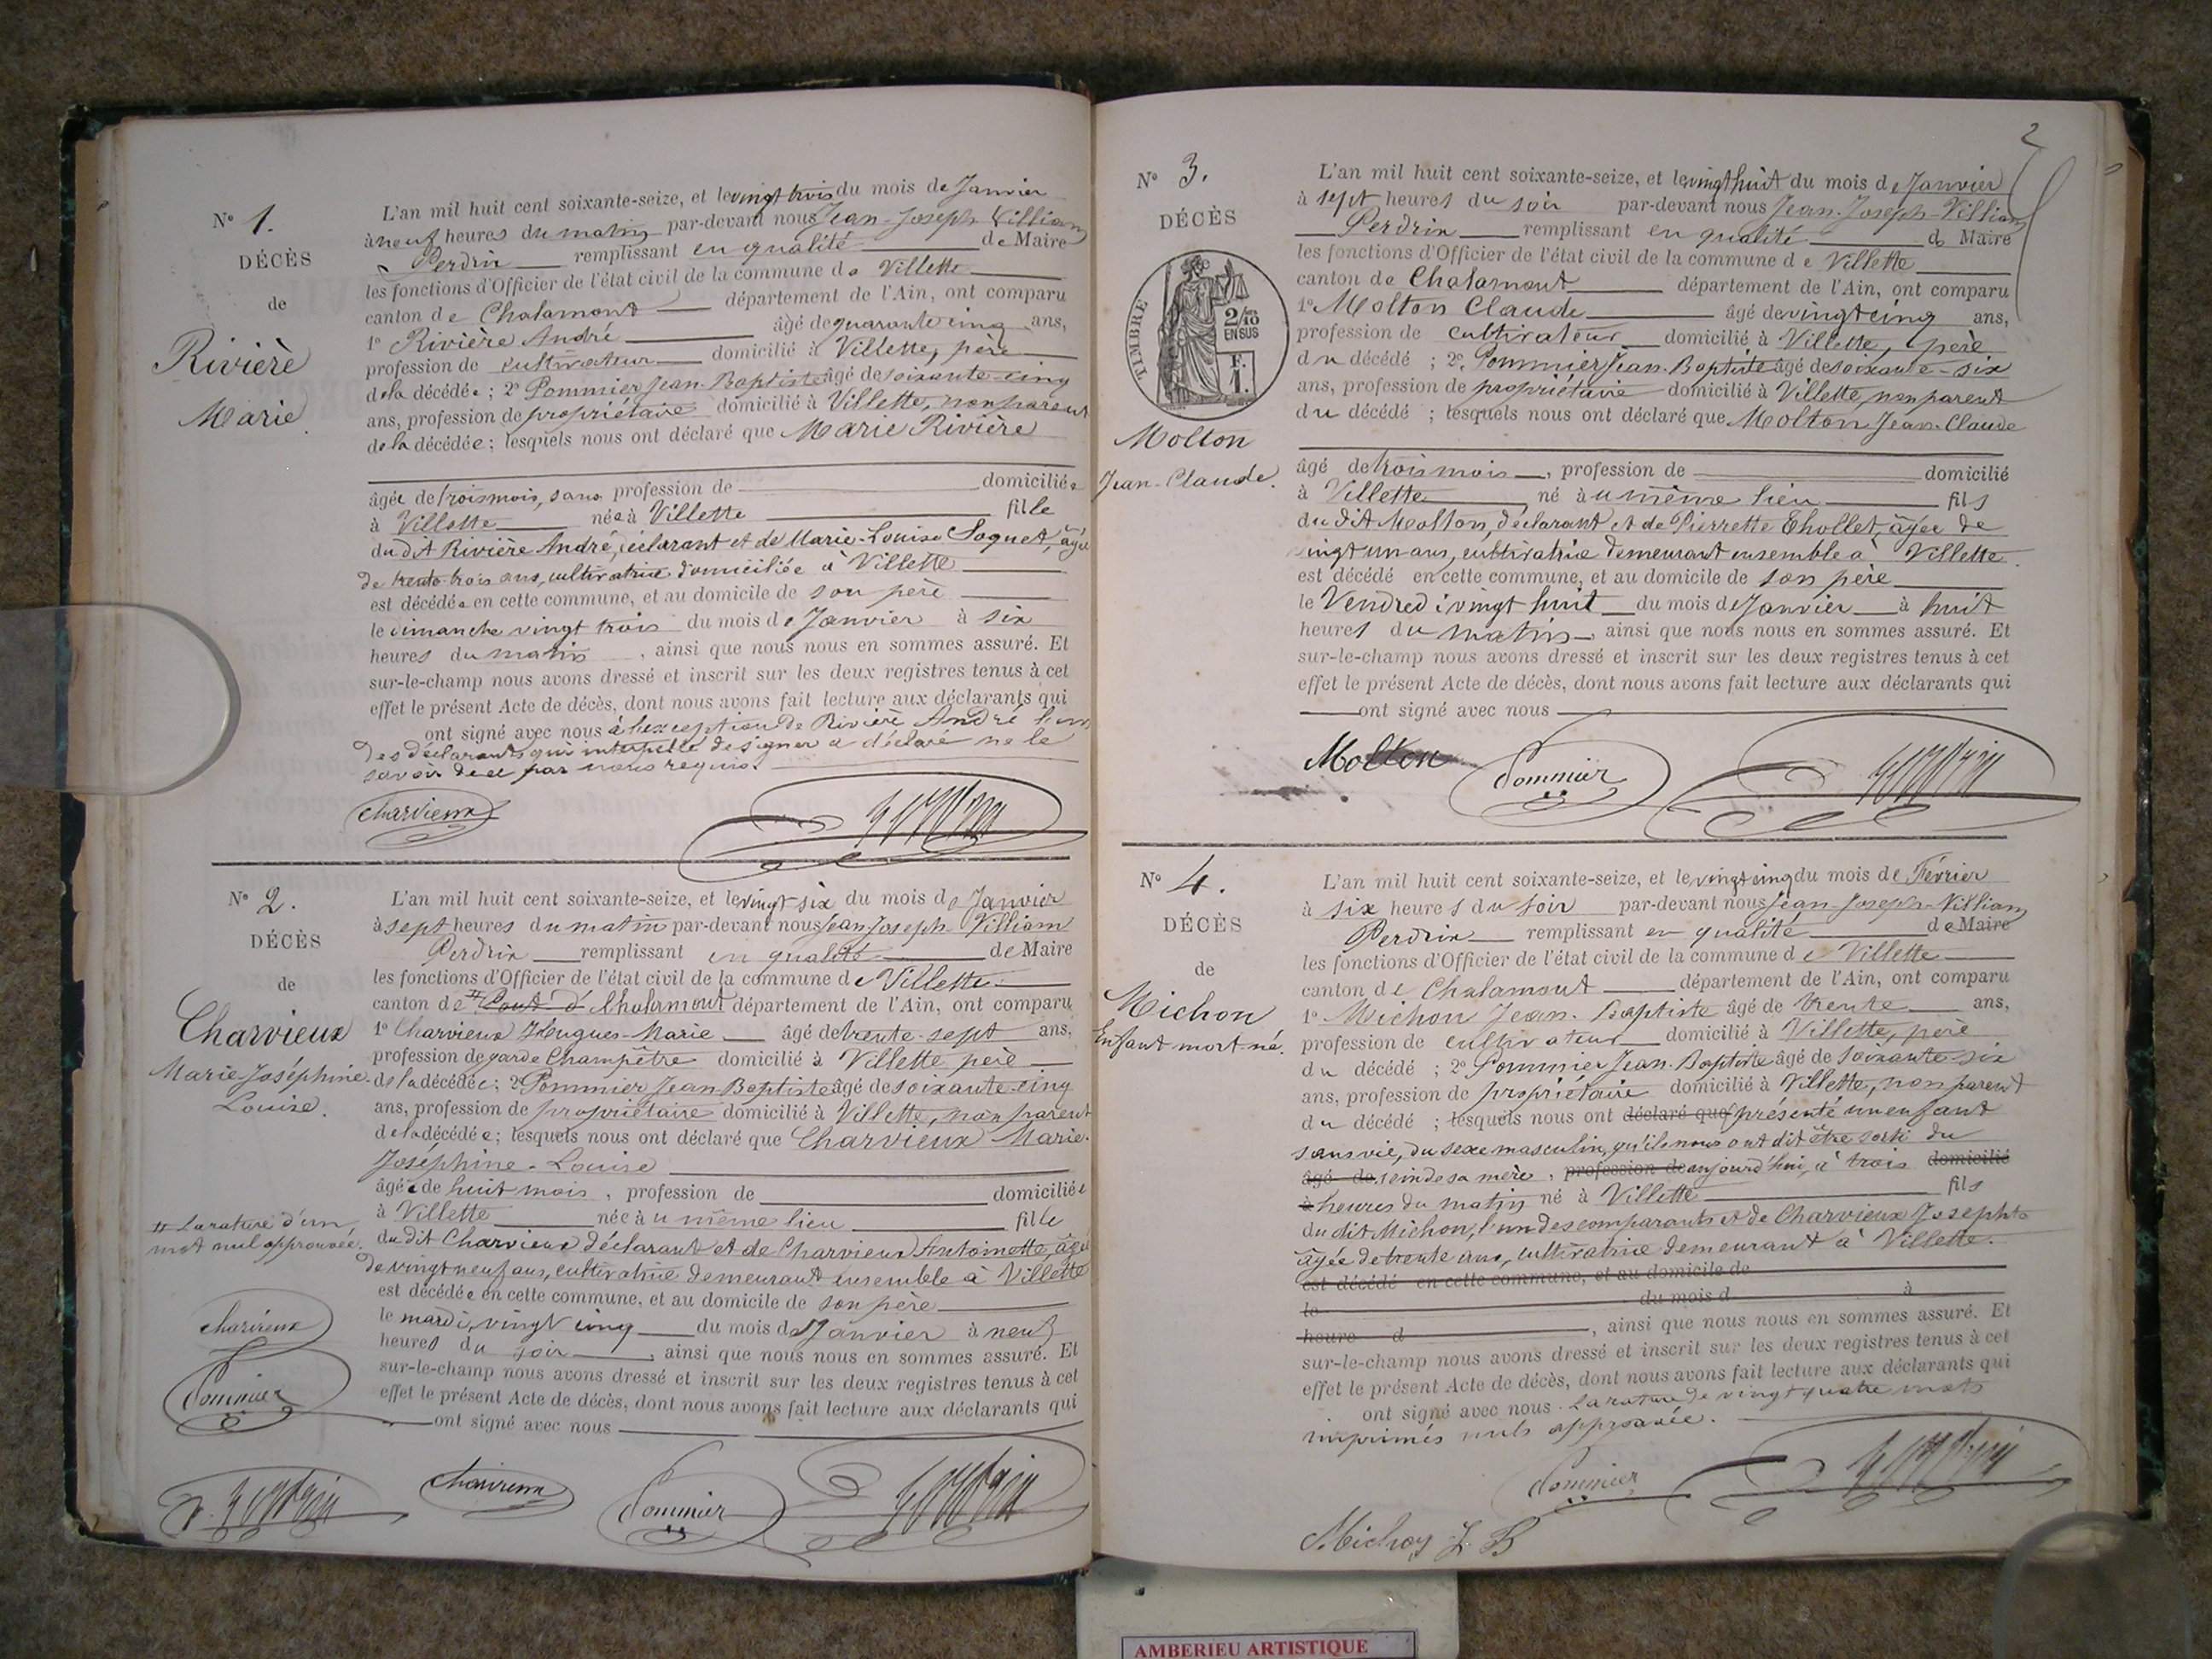 N° 1.
DÉCÈS
de
Rivière
Marie.
L'an mil huit cent soixante-seize, et le vingt trois du mois de Janvier
à neuf heures du matin par-devant nous Jean-Joseph Villiam
Perdrix remplissant en qualité de Maire
les fonctions d'Officier de l'état civil de la commune de Villette
canton de Chalamont département de l'Ain, ont comparu
1° Rivière André âgé de quarante cinq ans,
profession de cultivateur domicilié à Villette, père
de la décédée ; 2° Pommier Jean-Baptiste âgé de soixante-cinq
ans, profession de propriétaire domicilié à Villette, non parent
de la décédée ; lesquels nous ont déclaré que Marie Rivière
âgée de trois mois, sans profession de domiciliée
à Villette née à Villette fille
du dit Rivière André, déclarant et de Marie-Louise Soquet, âgée
de trente-trois ans, cultivatrice domiciliée à Villette
est décédée en cette commune, et au domicile de son père
le dimanche vingt trois du mois de Janvier à six
heures du matin , ainsi que nous nous en sommes assuré. Et
sur-le-champ nous avons dressé et inscrit sur les deux registres tenus à cet
effet le présent Acte de décès, dont nous avons fait lecture aux déclarants qui
ont signé avec nous à l'exception de Rivière André l'un
des déclarants qui interpellé de signer a déclaré ne le
savoir de ce par nous requis.
Charvieux
N° 2.
DÉCÈS
de
Charvieux
Marie-Joséphine-
Louise.
L'an mil huit cent soixante-seize, et le vingt-six du mois de Janvier
à sept heures du matin par-devant nous Jean-Joseph Villiam
Perdrix remplissant en qualité de Maire
les fonctions d'Officier de l'état civil de la commune de Villette
canton de # Pont d' Chalamont département de l'Ain, ont comparu
1° Charvieux Hugues-Marie âgé de trente-sept ans,
profession de garde Champêtre domicilié à Villette père
de la décédée ; 2° Pommier Jean-Baptiste âgé de soixante-cinq
ans, profession de propriétaire domicilié à Villette, non parent
de la décédée ; lesquels nous ont déclaré que Charvieux Marie-
Joséphine-Louise
âgée de huit mois , profession de domiciliée
à Villette née au même lieu fille
du dit Charvieux déclarant et de Charvieux Antoinette, âgée
de vingt neuf ans, cultivatrice demeurant ensemble à Villette
est décédée en cette commune, et au domicile de son père
le mardi, vingt cinq du mois de Janvier à neuf
heures du soir , ainsi que nous nous en sommes assuré. Et
sur-le-champ nous avons dressé et inscrit sur les deux registres tenus à cet
effet le présent Acte de décès, dont nous avons fait lecture aux déclarants qui
ont signé avec nous
# La rature d'un
mot nul approuvée.
Charvieux
Pommier
Charvieux Pommier
2
N° 3.
DÉCÈS
TIMBRE
2/10
EN SUS
F.
1.
Molton
Jean-Claude.
L'an mil huit cent soixante-seize, et le vingt huit du mois de Janvier
à sept heures du soir par-devant nous Jean-Joseph-Villiam
Perdrix remplissant en qualité de Maire
les fonctions d'Officier de l'état civil de la commune de Villette
canton de Chalamont département de l'Ain, ont comparu
1° Molton Claude âgé de vingt cinq ans,
profession de cultivateur domicilié à Villette, père
du décédé ; 2° Pommier Jean-Baptiste âgé de soixante-six
ans, profession de propriétaire domicilié à Villette, non parent
du décédé ; lesquels nous ont déclaré que Molton Jean-Claude
âgé de trois mois , profession de domicilié
à Villette né au même lieu fils
du dit Molton, déclarant et de Pierrette Thollet, âgée de
vingt un ans, cultivatrice demeurant ensemble à Villette.
est décédé en cette commune, et au domicile de son père
le Vendredi vingt huit du mois de Janvier à huit
heures du matin , ainsi que nous nous en sommes assuré. Et
sur-le-champ nous avons dressé et inscrit sur les deux registres tenus à cet
effet le présent Acte de décès, dont nous avons fait lecture aux déclarants qui
ont signé avec nous
Molton Pommier
N° 4.
DÉCÈS
de
Michon
Enfant mort-né.
L'an mil huit cent soixante-seize, et le vingt cinq du mois de Février
à six heures du soir par-devant nous Jean-Joseph-Villiam
Perdrix remplissant en qualité de Maire
les fonctions d'Officier de l'état civil de la commune de Villette
canton de Chalamont département de l'Ain, ont comparu
1° Michon Jean-Baptiste âgé de trente ans,
profession de cultivateur domicilié à Villette, père
du décédé ; 2° Pommier Jean-Baptiste âgé de soixante-six
ans, profession de propriétaire domicilié à Villette, non parent
du décédé ; lesquels nous ont déclaré que présenté un enfant
sans vie, du sexe masculin, qu'ils nous ont dit être sorti du
âgé de sein de sa mère, profession de aujourd'hui, à trois domicilié
à heures du matin né à Villette fils
du dit Michon, l'un des comparants et de Charvieux Josephte
âgée de trente ans, cultivatrice demeurant à Villette.
est décédé en cette commune, et au domicile de
le du mois d à
heure d , ainsi que nous nous en sommes assuré. Et
sur-le-champ nous avons dressé et inscrit sur les deux registres tenus à cet
effet le présent Acte de décès, dont nous avons fait lecture aux déclarants qui
ont signé avec nous. La rature de vingt quatre mots
imprimés nuls approuvée.
Pommier
Michon J B
AMBERIEU ARTISTIQUE